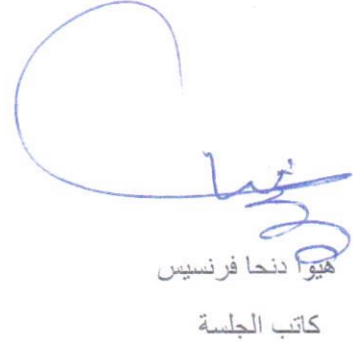 هيوا دنحا فرنسيس
كاتب الجلسة